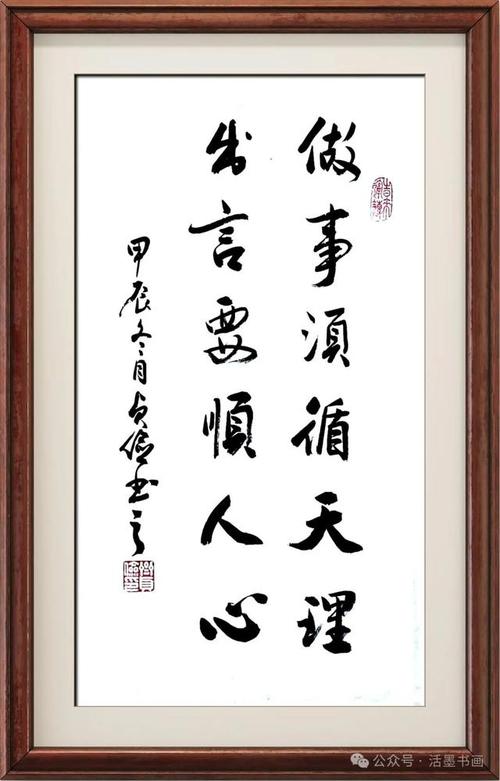 做事须循天理
出言要順人心
甲辰冬月贞俭书之
公众号·活墨书画